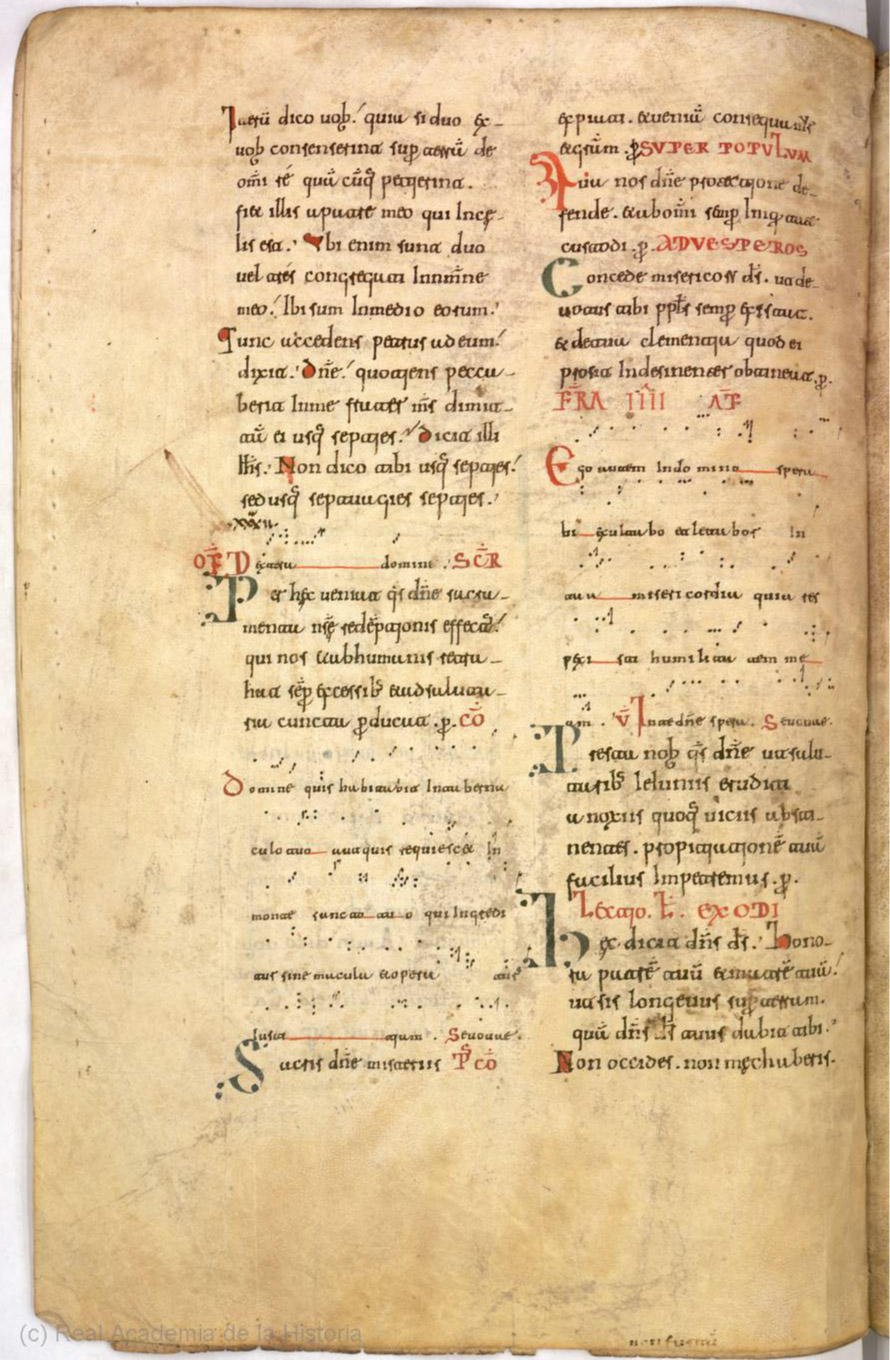 Iterū dico uob̅. quia si duo ex
uob̅ consenserint sup̄ terrā de
om̄i re quā cūq̄ petierint.
fiet illis a patre meo qui in cę
lis est. Ubi enim sunt duo
uel tres congregati in nom̄ne
meo. Ibi sum In medio eorum.
Tunc accedens petrus ad eum.
dixit. Dn̄e. quotiens pecca
berit In me frater m̄s dimit
tā ei usq̄ septies. Dicit illi
Ih̄s. Non dico tibi usq̄ septies.
sed usq̄ septuagies septies.
OF̄ Dextera domini. SC̄R
Per hęc ueniat q̄s dn̄e sacra
menta nr̄ę redēptionis effectus.
qui nos & ab humanis retra
hat sēp̄ excessib; & ad salutaria
cuncta p̄ducat. p̄. CŌ
Domine quis habitabit In taberna
culo tuo aut quis requiescet In
monte sancto tuo qui Ingredi
tur sine macula & operatur
Iustitiam. Seuouae.
Sacris dn̄e misteriis P̄ CŌ
expiati. & ueniā consequamur
& gr̄am. p̄ SUPER POPULUM
Tua nos dn̄e protectione de
fende. & ab om̄i semp̄ Iniquitate
custodi. p̄. AD UESPEROS
Concede misericors d̄s. ut de
uotus tibi ppl̄s semp̄ existat.
& de tua clementia quod ei
prosit Indesinenter obtineat. p̄.
FR̄A IIII AT̄
Ego autem In domino spera
bi exultabo et letabor In
tua misericordia quia res
pexisti humilitatem me
am. V̄ In te dn̄e spera. Seuouae.
Presta nob̅ q̄s dn̄e ut salu
tarib; Ieiuniis eruditi
a noxiis quoq̄ uiciis absti
nentes. propitiationē tuā
facilius Impetremus. p̄.
Lectio. L̄. EXODI
Hęc dicit dn̄s d̄s. Hono
ra patrē tuū & matrē tuā.
ut sis longeuus sup̄ terram.
quā dn̄s d̄s tuus dabit tibi.
Non occides. non męchaberis.
(c) Real Academia de la Historia